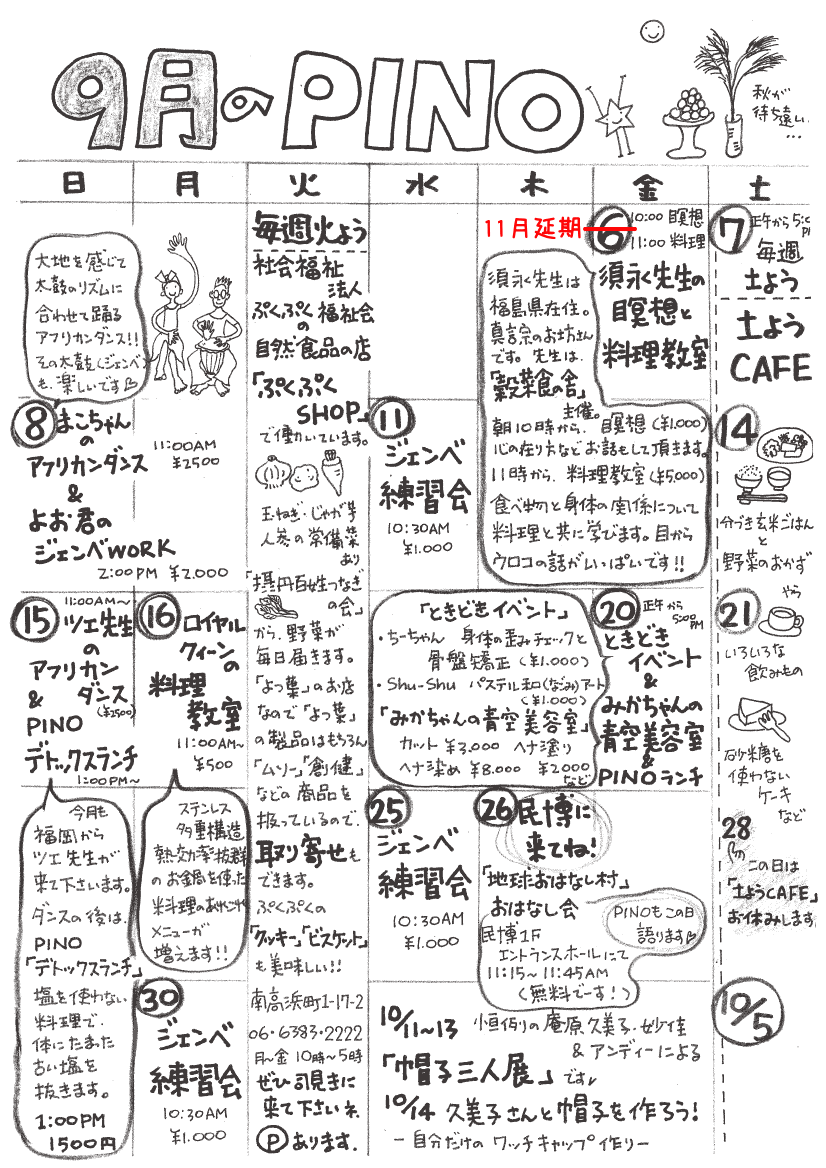 9月のPINO
秋が
待ち遠い
...
日 月 火 水 木 金 土
大地を感じて
太鼓のリズムに
合わせて踊る
アフリカンダンス!!
その太鼓(ジェンベ)
も、楽しいです
8 まこちゃん
の
アフリカンダンス
&
よお君の
ジェンベWORK
11:00AM
¥2500
2:00PM ¥2.000
15 11:00AM~
ツェ先生
の
アフリカン
& ダンス
(¥2500)
PINO
デトックスランチ
1:00PM~
今月も
福岡から
ツェ先生が
来て下さいます。
ダンスの後は、
PINO
「デトックスランチ」
塩を使わない
料理で、
体にたまった
古い塩を
抜きます。
1:00PM
1500円
16 ロイヤル
クィーンの
料理
教室
11:00AM~
¥500
ステンレス
多重構造
熱効率抜群
のお鍋を使った
料理の
メニューが
増えます!!
30
ジェンベ
練習会
10:30AM
¥1.000
毎週火よう
社会福祉
法人
ぷくぷく福祉会
の
自然食品の店
「ぷくぷく
SHOP」
で働いています。
玉ねぎ・じゃが芋
人参の常備菜
あり
「摂丹百姓つなぎ
の会」
から、野菜が
毎日届きます。
「よつ葉」のお店
なので「よつ葉」
の製品はもちろん
「ムソー」「創健」
などの商品を
扱っているので、
取り寄せも
できます。
ぷくぷくの
「クッキー」「ビスケット」
も美味しい!!
南高浜町1-17-2
06・6383・2222
月~金 10時~5時
ぜひ覗きに
来て下さいネ
Pあります.
11
ジェンベ
練習会
10:30AM
¥1.000
11月延期
6 10:00 瞑想
11:00 料理
須永先生の
瞑想と
料理教室
須永先生は
福島県在住。
真言宗のお坊さん
です。先生は、
「穀菜食の舎」
主催。
朝10時から、瞑想(¥1.000)
心の在り方などお話もして頂きます。
11時から、料理教室(¥5.000)
食べ物と身体の関係について
料理と共に学びます。目から
ウロコの話がいっぱいです!!
「ときどきイベント」
・ちーちゃん 身体の歪みチェックと
骨盤矯正(¥1.000)
・Shu-Shu パステル和(なごみ)アート
(¥1.000)
「みかちゃんの青空美容室」
カット ¥3.000 ヘナ塗り
ヘナ染め ¥8.000 ¥2000
など
20 正午から
5:00PM
ときどき
イベント
&
みかちゃんの
青空美容室
&
PINOランチ
25
ジェンベ
練習会
10:30AM
¥1.000
26 民博に
来てね!
「地球おはなし村」
おはなし会
民博1F
エントランスホールにて
11:15~11:45AM
(無料でーす!)
PINOもこの日
語ります
10/11~13 恒例の庵原久美子・妙佳
&アンディーによる
「帽子三人展」です
10/14 久美子さんと帽子を作ろう!
-自分だけのワッチキャップ作り-
7 正午から5:0
PM
毎週
土よう
土よう
CAFE
14
分づき玄米ごはん
と
野菜のおかず
やら
21
いろいろな
飲みもの
砂糖を
使わない
ケーキ
など
28
この日は
「土ようCAFE」
お休みします
10/5